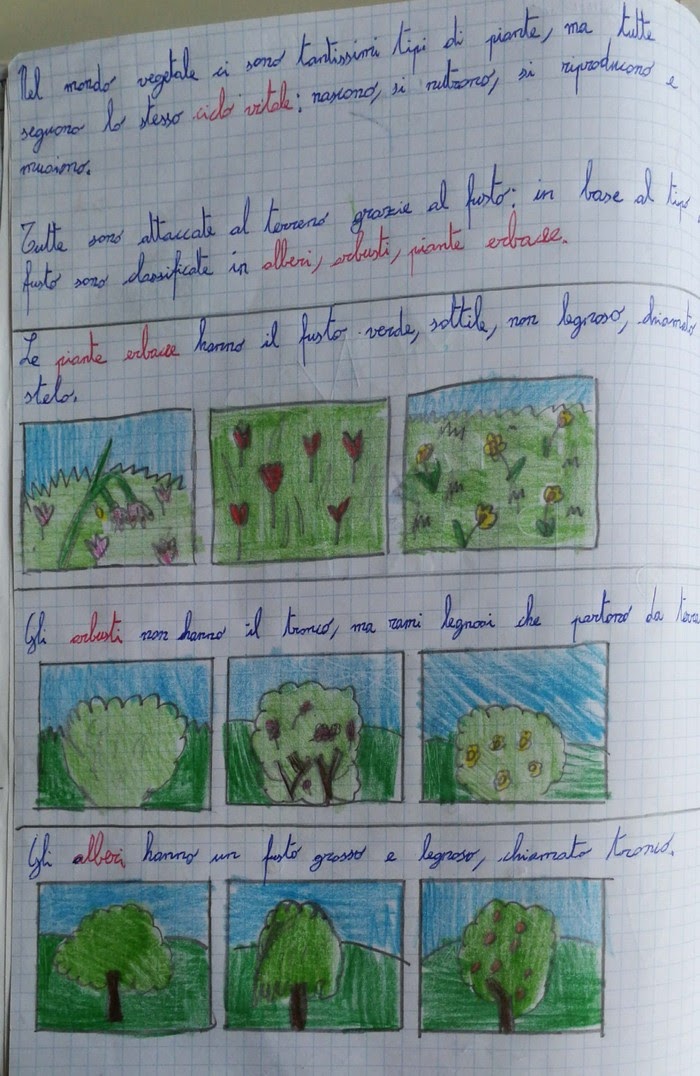 Nel mondo vegetale ci sono tantissimi tipi di piante, ma tutte
seguono lo stesso ciclo vitale: nascono, si nutrono, si riproducono e
muoiono.
Tutte sono attaccate al terreno grazie al fusto: in base al tipo
fusto sono classificate in alberi, arbusti, piante erbacee.
Le piante erbacee hanno il fusto verde, sottile, non legnoso, chiamato
stelo.
Gli arbusti non hanno il tronco, ma rami legnosi che partono da terra
Gli alberi hanno un fusto grosso e legnoso, chiamato tronco.